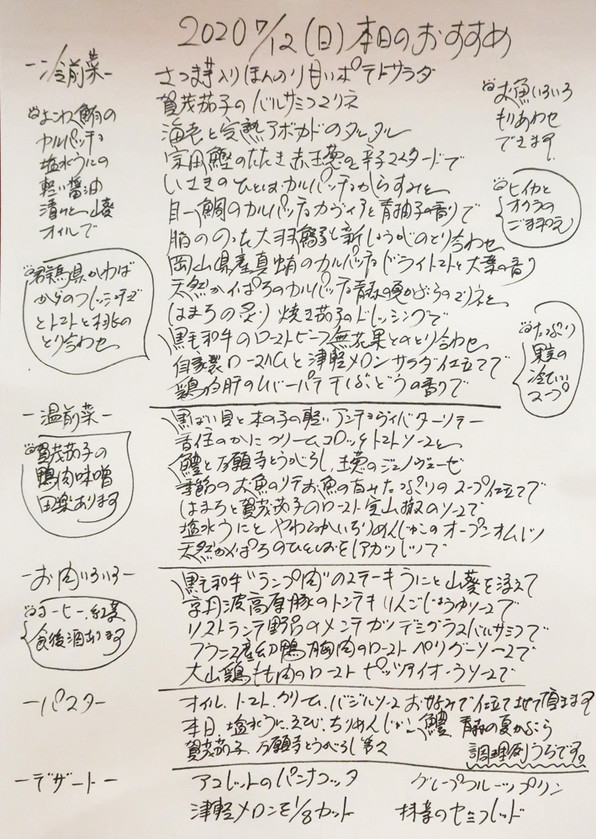 2020 7/12(日)本日のおすすめ
ー冷前菜ー
さつま芋入りほんのり甘いポテトサラダ
賀茂茄子のバルサミコマリネ
海老と完熟アボカドのタルタル
宗田鰹のたたき赤玉葱と辛子マスタードで
いさきのひとしおカルパッチョからすみと
目一鯛のカルパッチョカヴィアと青柚子の香りで
脂ののった大羽鰯と新しょうがのとり合わせ
岡山県産真蛸のカルパッチョドライトマトと大葉の香り
天然かんぱちのカルパッチョ青森の夏かぶらのマリネと
はまちの炙り 焼き茄子のドレッシングで
黒毛和牛のローストビーフ無花果とのとり合わせ
自家製ロースハムと津軽メロン サラダ仕立てで
鶏白肝のレバーパテ干しぶどうの香りで
よこわ鮪の
カルパッチョ
塩水うにの
軽い醤油
漬けと山葵
オイルで
群馬県かわば
からのフレッシュチーズ
とトマトと桃の
とり合わせ
お魚いろいろ
もりあわせ
できます
ヒイカと
オクラの
ごま和え
たっぷり
果実の
冷たい
スープ
ー温前菜ー
黒ばい貝と木の子の軽いアンチョヴィバターソテー
香住のかにクリームコロッケトマトソースと
鱧と万願寺とうがらし、玉葱のジェノヴェーゼ
季節のお魚のソテーお魚の旨みたっぷりのスープ仕立てで
はまちと賀茂茄子のロースト実山椒のソースで
塩水うにとやわらかいちりめんじゃこのオープンオムレツ
天然かんぱちのひとしおをレアカツレツで
賀茂茄子の
鴨肉味噌
田楽あります
ーお肉いろいろー
黒毛和牛"ランプ肉"のステーキうにと山葵を添えて
京丹波高原豚のトンテキ りんごじょうゆソースで
リストランテ野呂のメンチカツ デミグラスバルサミコで
フランス産幼鴨胸肉のロースト ペリグーソースで
大山鶏もも肉のロースト ピッツァイオーラソースで
コーヒー、紅茶
食後酒あります
ーパスター
オイル、トマト、クリーム、バジルソース お好みで仕立させて頂きます
本日、塩水うに、えび、ちりめんじゃこ、鱧、青森の夏かぶら
賀茂茄子、万願寺とうがらし等々
調理例うらです。
ーデザートー
アメレットのパンナコッタ
グレープフルーツプリン
津軽メロンを1/8カット
抹茶のセミフレッド